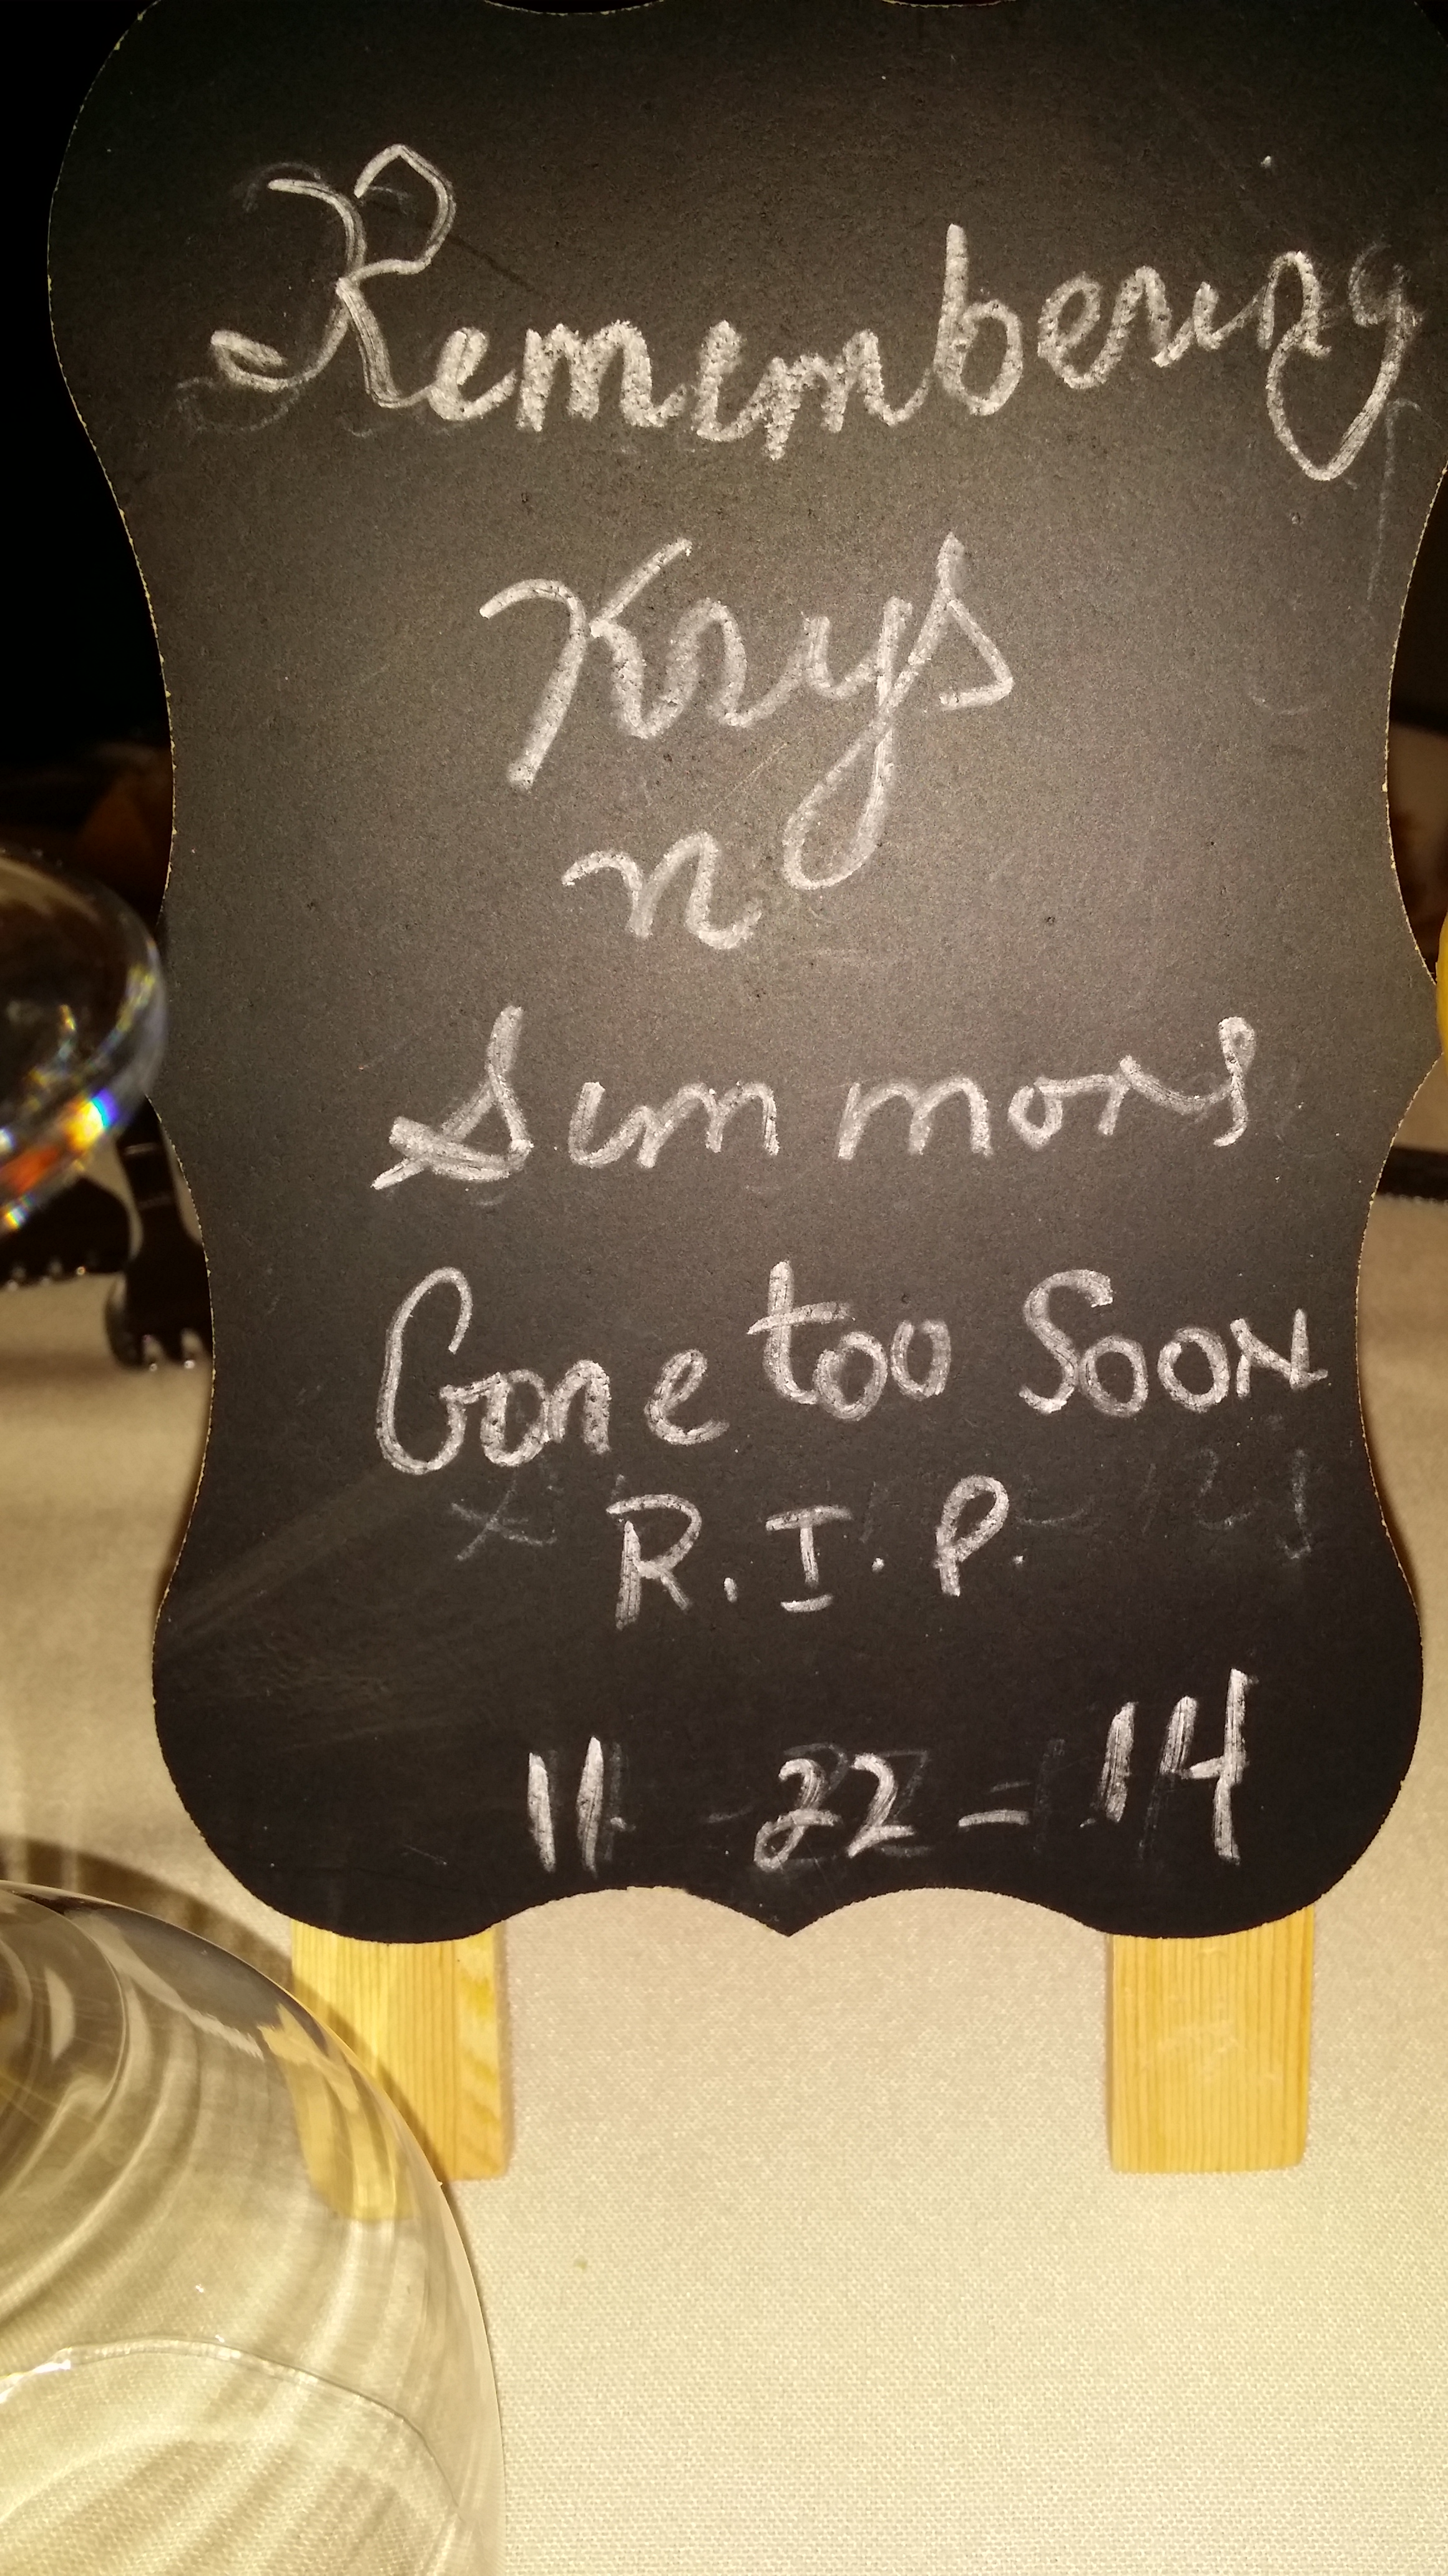 Remembering
Krys
n
Simmons
Gone too Soon
R.I.P.
11-22-14